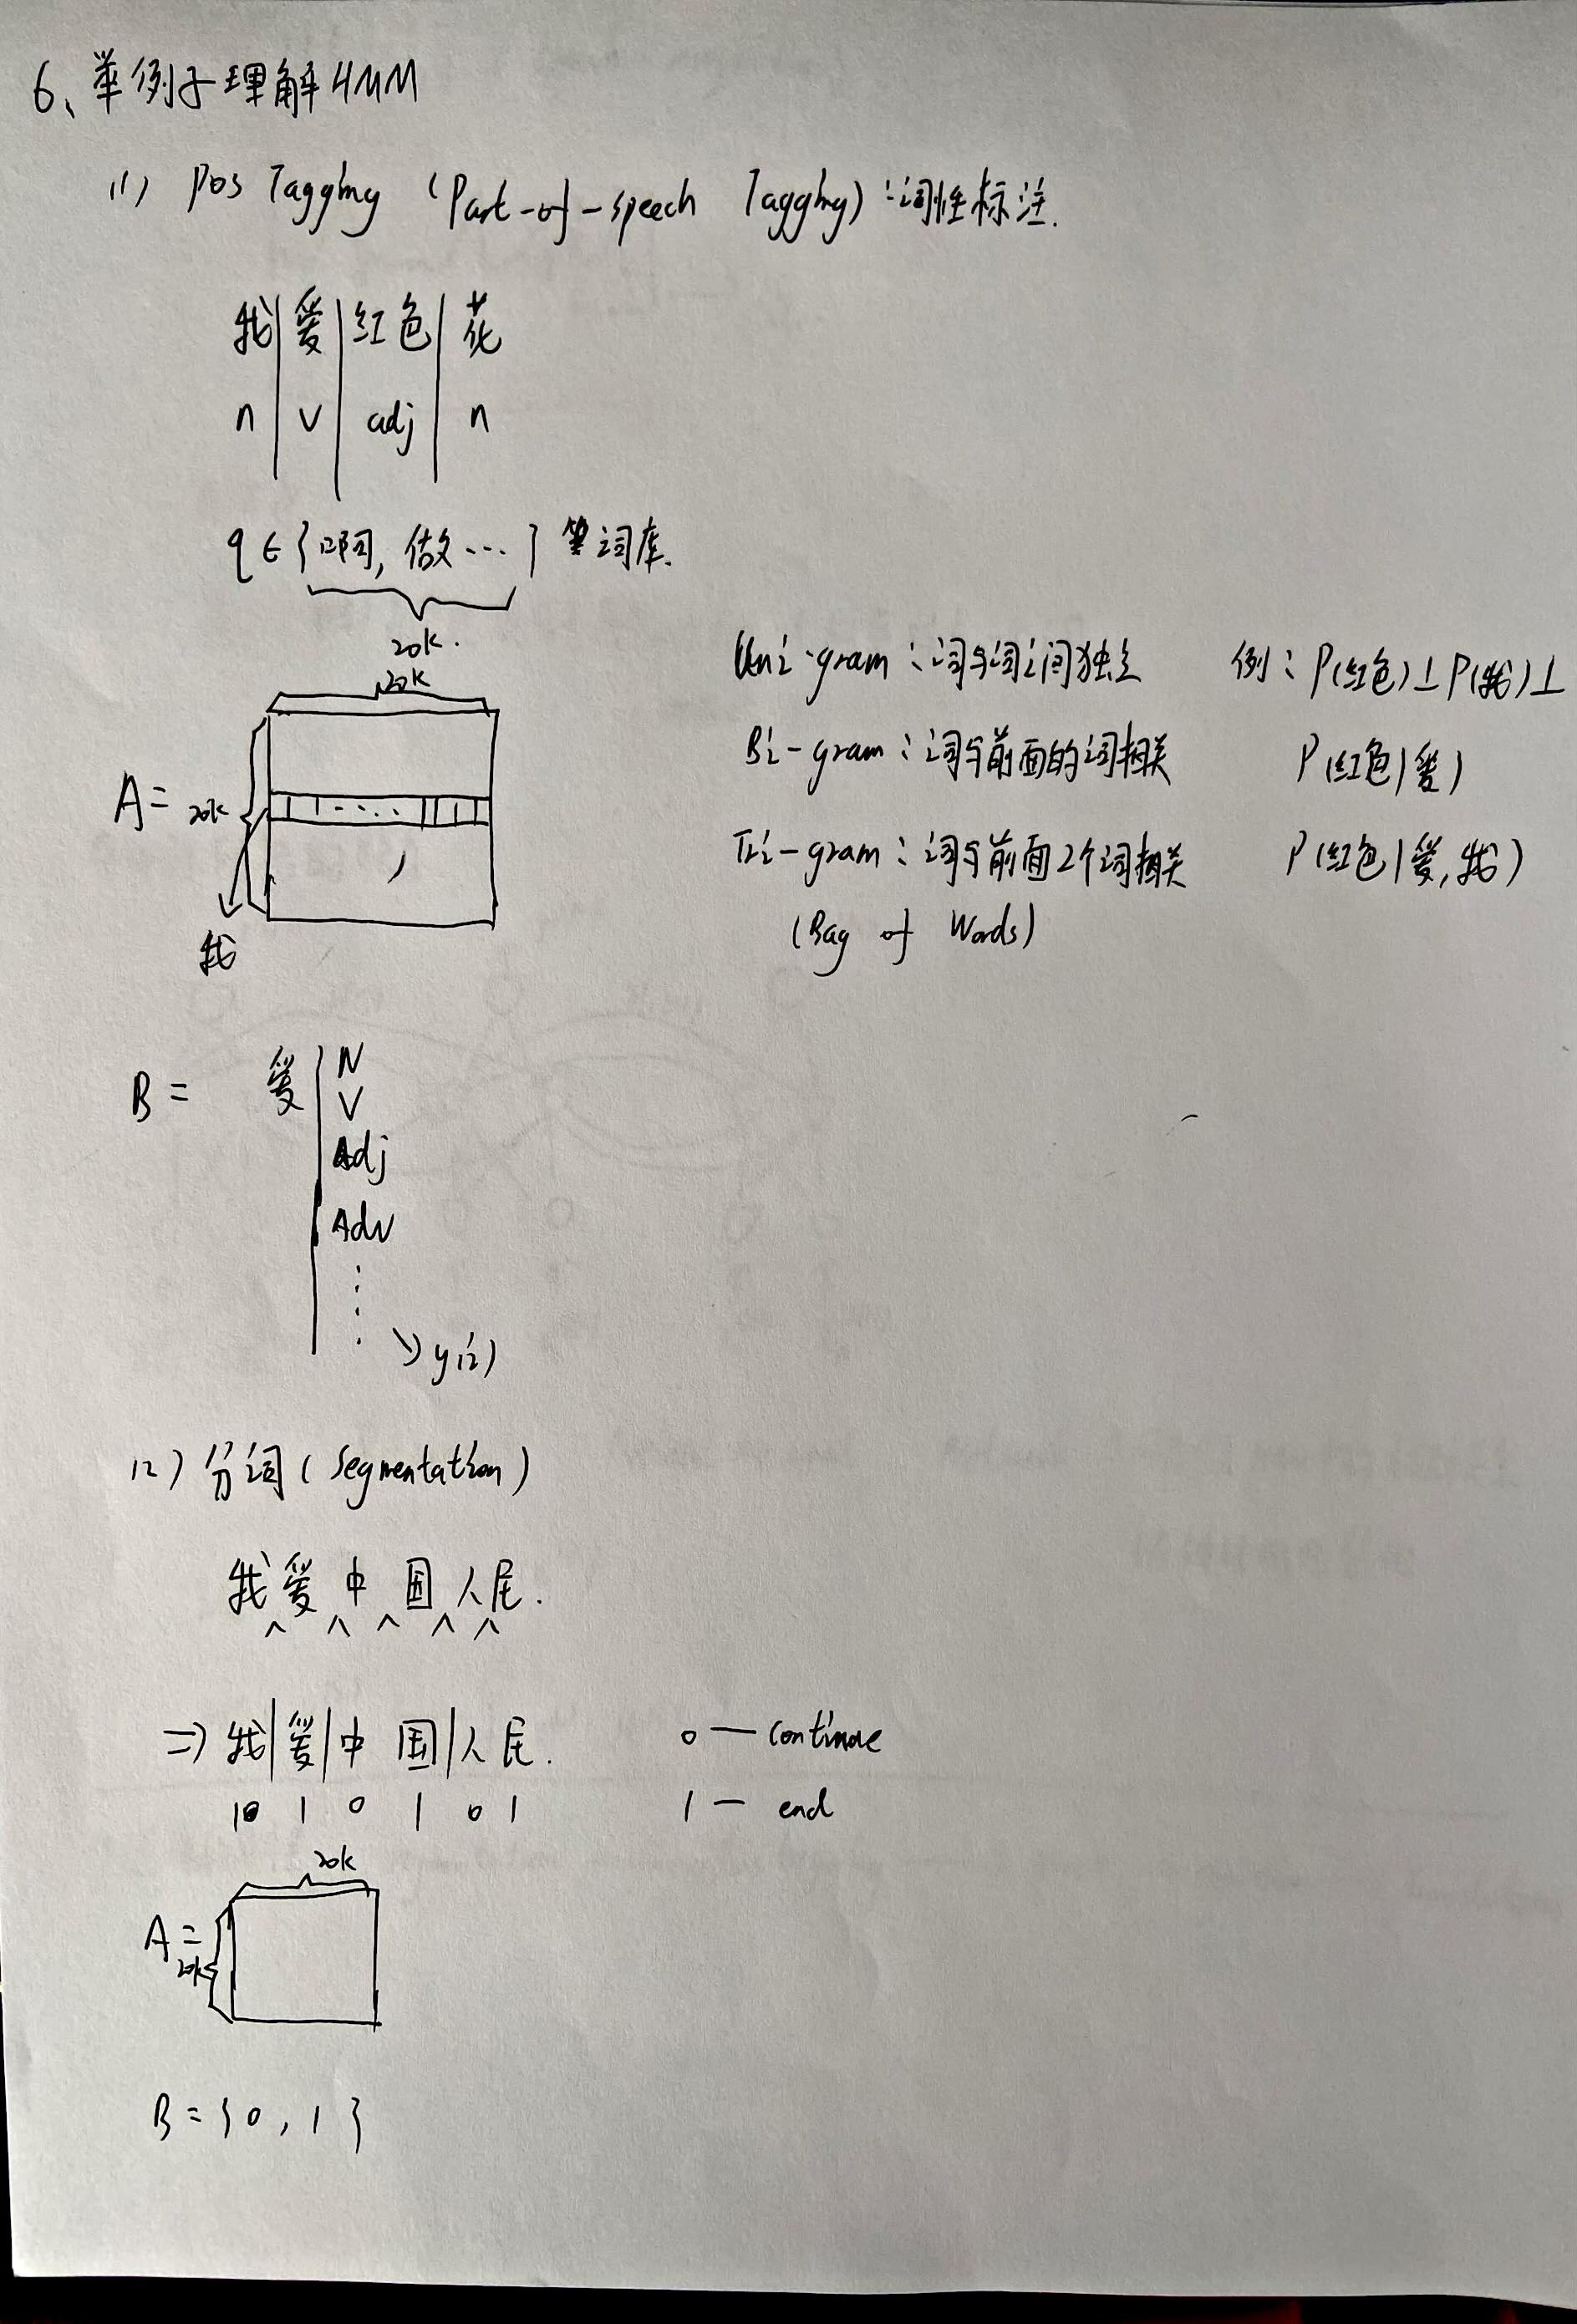 6、举例子理解HMM
(1) Pos Tagging (Part-of-speech Tagging):词性标注.
我|爱|红色|花
n|v|adj|n
q∈{啊, 做…} 等词库.
20k.
20k
A=
20k
我
Uni-gram:词与词之间独立 例:P(红色)⊥P(我)⊥
Bi-gram:词与前面的词相关 P(红色|爱)
Tri-gram:词与前面2个词相关 P(红色|爱,我)
(Bag of Words)
B= 爱 N
V
Adj
Adv
⋮
y(i)
(2) 分词(Segmentation)
我爱中国人民.
⇒我|爱|中国|人民. 0—continue
1 1 0 1 0 1 1—end
20k
A=
20k
B={0,1}